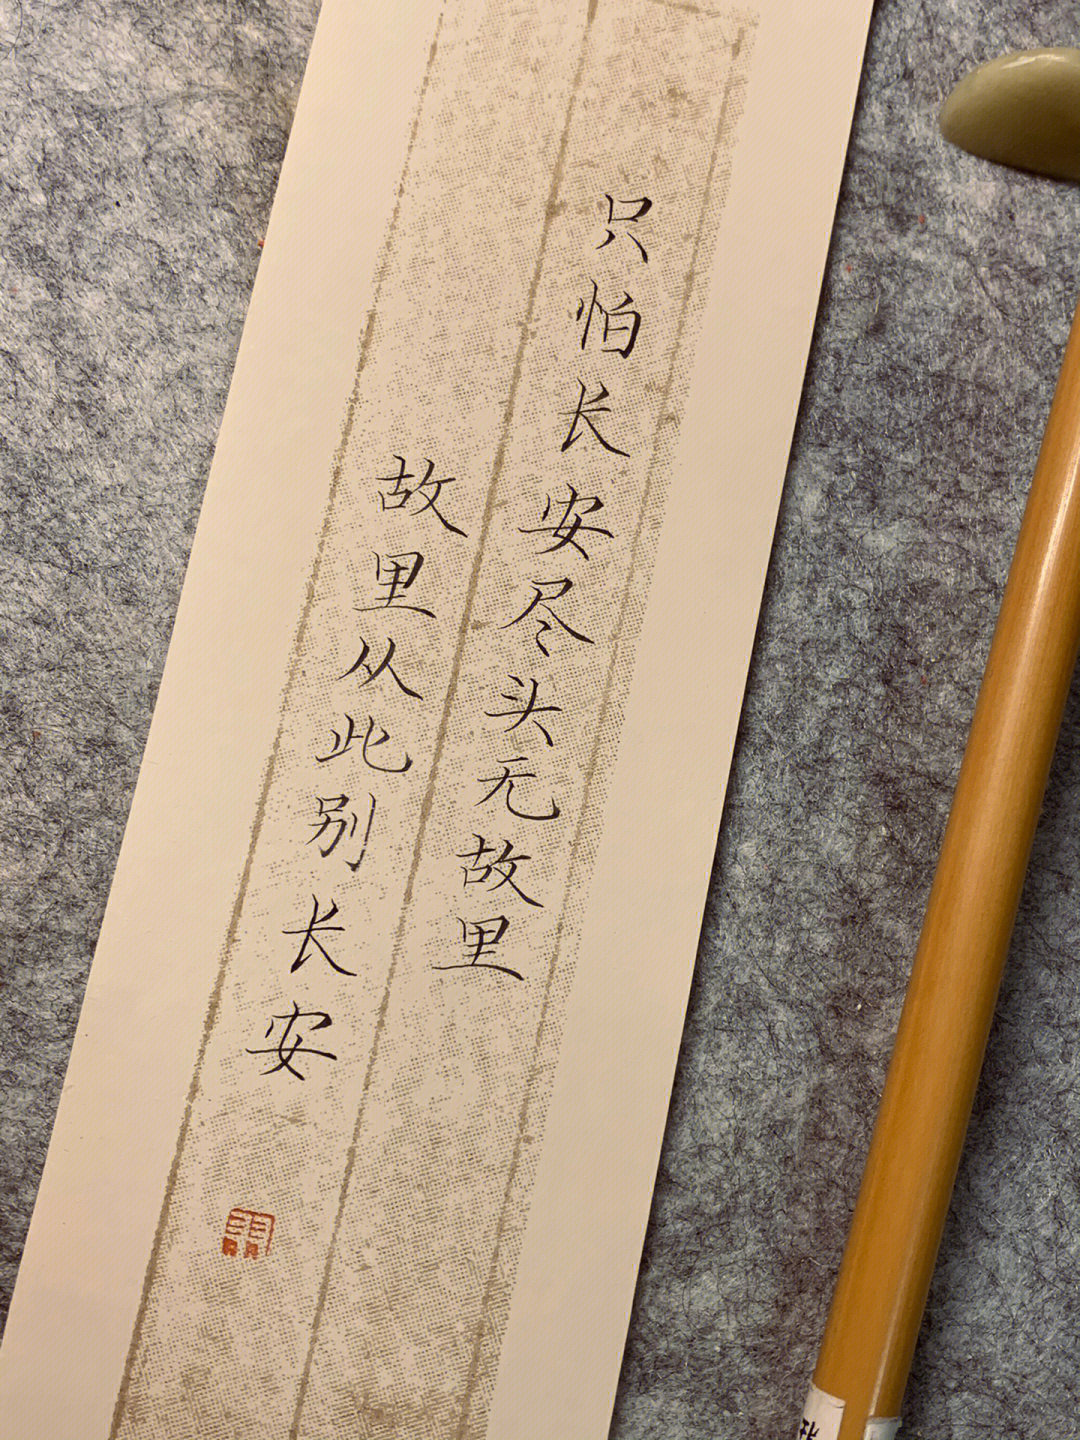 只怕长安尽头无故里
故里从此别长安